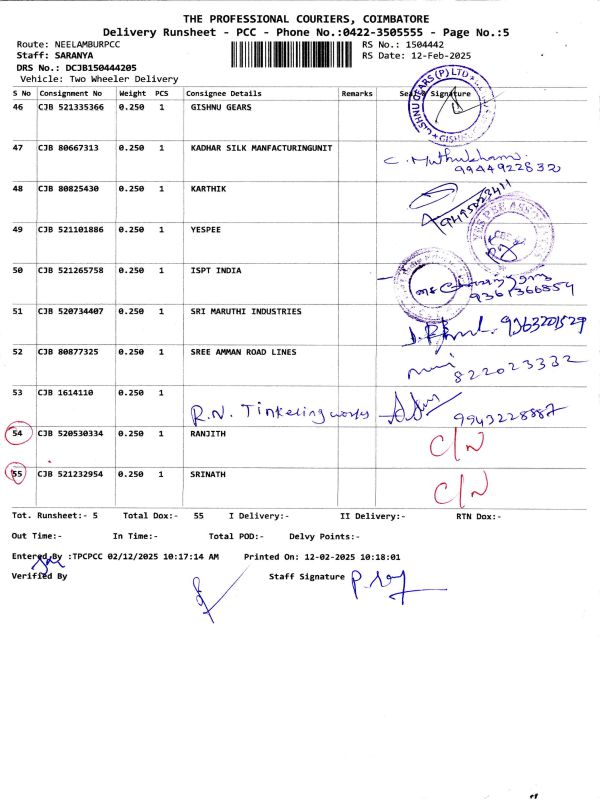 THE PROFESSIONAL COURIERS, COIMBATORE
Delivery Runsheet - PCC - Phone No.:0422-3505555 - Page No.:5
Route: NEELAMBURPCC RS No.: 1504442
Staff: SARANYA RS Date: 12-Feb-2025
DRS No.: DCJB150444205
Vehicle: Two Wheeler Delivery
S No Consignment No Weight PCS Consignee Details Remarks Seal & Signature
46 CJB 521335366 0.250 1 GISHNU GEARS
GISHNU GEARS (P) LTD
47 CJB 80667313 0.250 1 KADHAR SILK MANFACTURINGUNIT
9944922832
48 CJB 80825430 0.250 1 KARTHIK
49 CJB 521101886 0.250 1 YESPEE
50 CJB 521265758 0.250 1 ISPT INDIA
51 CJB 520734407 0.250 1 SRI MARUTHI INDUSTRIES
9363201529
52 CJB 80877325 0.250 1 SREE AMMAN ROAD LINES
822023332
53 CJB 1614110 0.250 1
R.N. Tinkeling works 9943228887
54 CJB 520530334 0.250 1 RANJITH C/N
55 CJB 521232954 0.250 1 SRINATH C/N
Tot. Runsheet:- 5 Total Dox:- 55 I Delivery:- II Delivery:- RTN Dox:-
Out Time:- In Time:- Total POD:- Delvy Points:-
Entered By :TPCPCC 02/12/2025 10:17:14 AM Printed On: 12-02-2025 10:18:01
Verified By Staff Signature